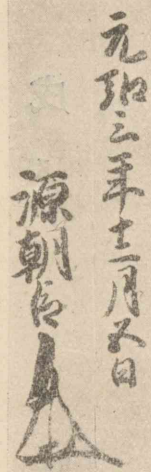 元弘三年十二月五日
源朝臣